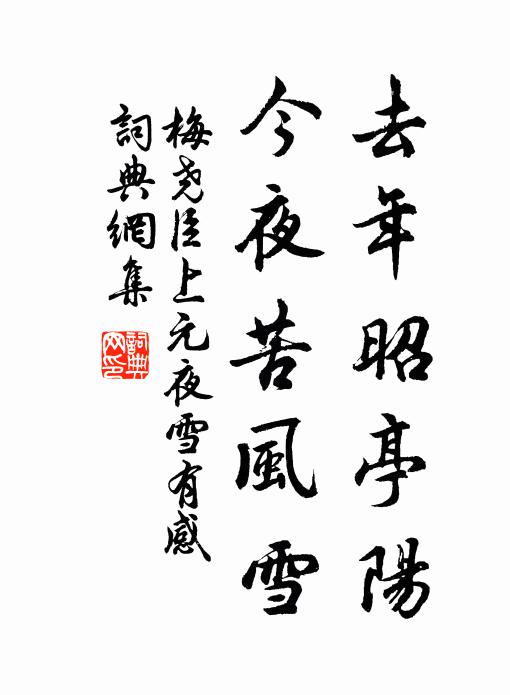 去年昭亭陽
今夜苦風雪
梅尧臣上元夜雪有感
詞典網集
詞典网印